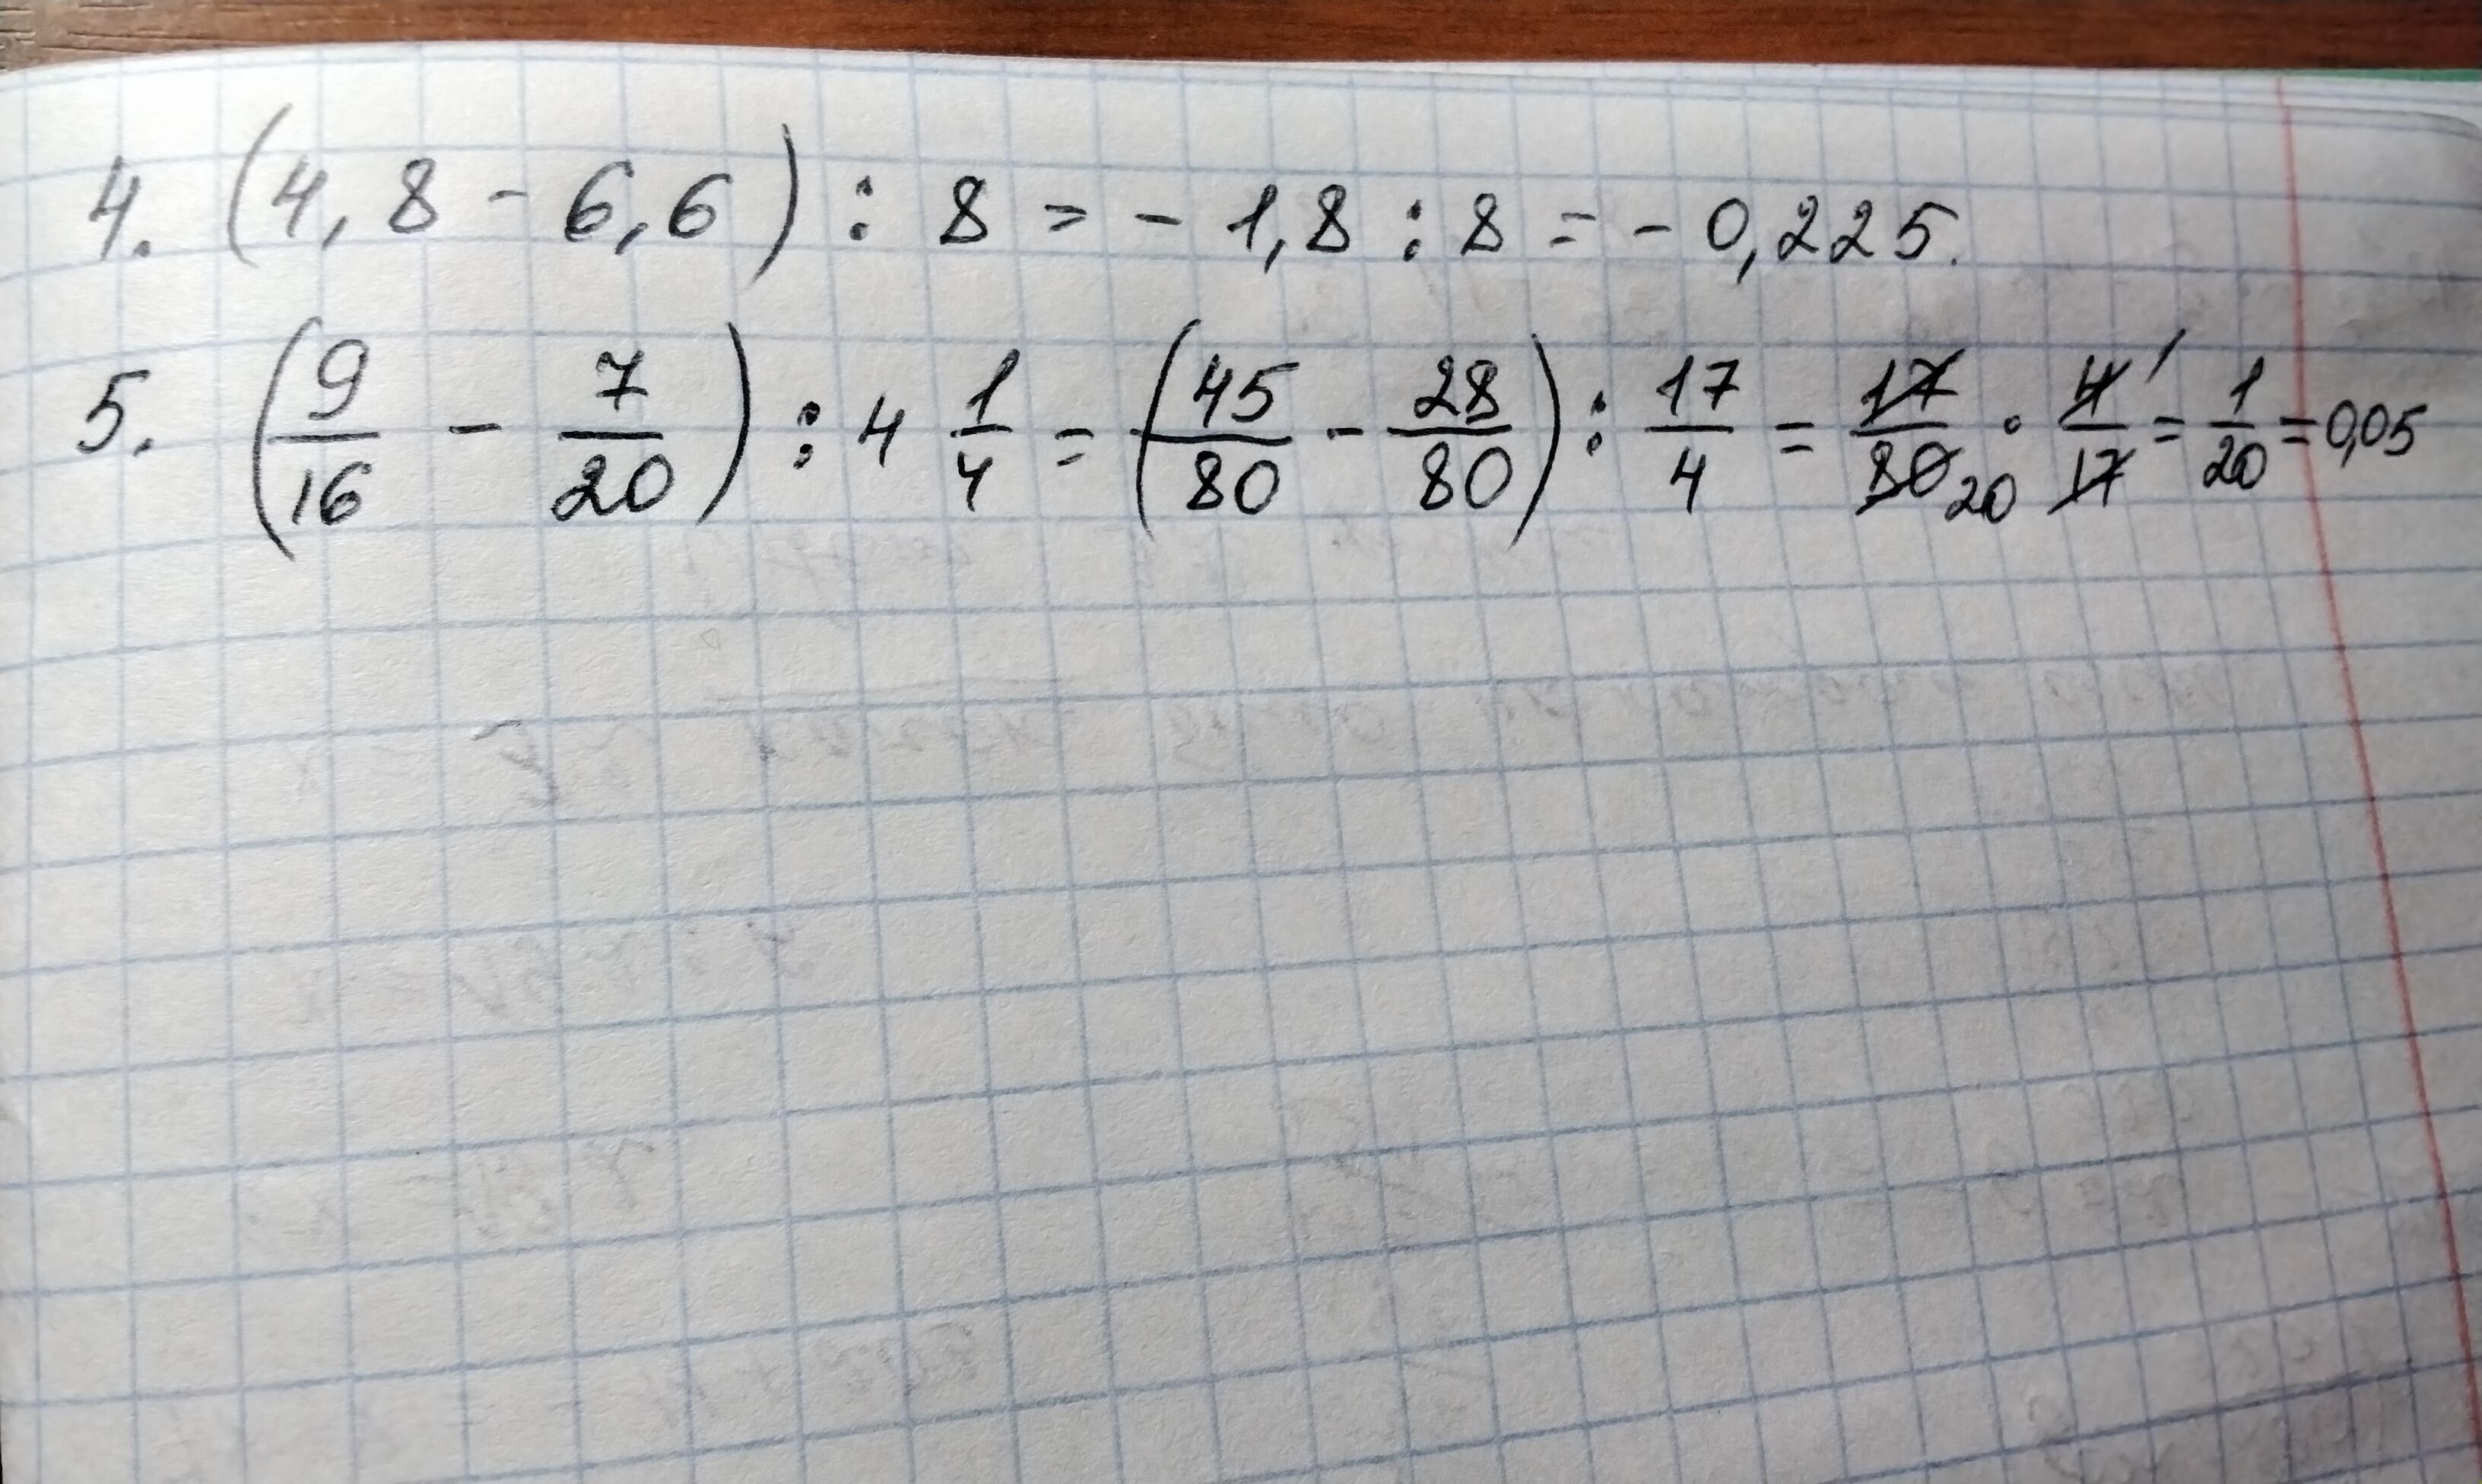 4. (4,8 - 6,6) : 8 = - 1,8 : 8 = - 0,225.
5. (9/16 - 7/20) : 4 1/4 = (45/80 - 28/80) : 17/4 = 17/80 20 · 4/17 1 = 1/20 = 0,05